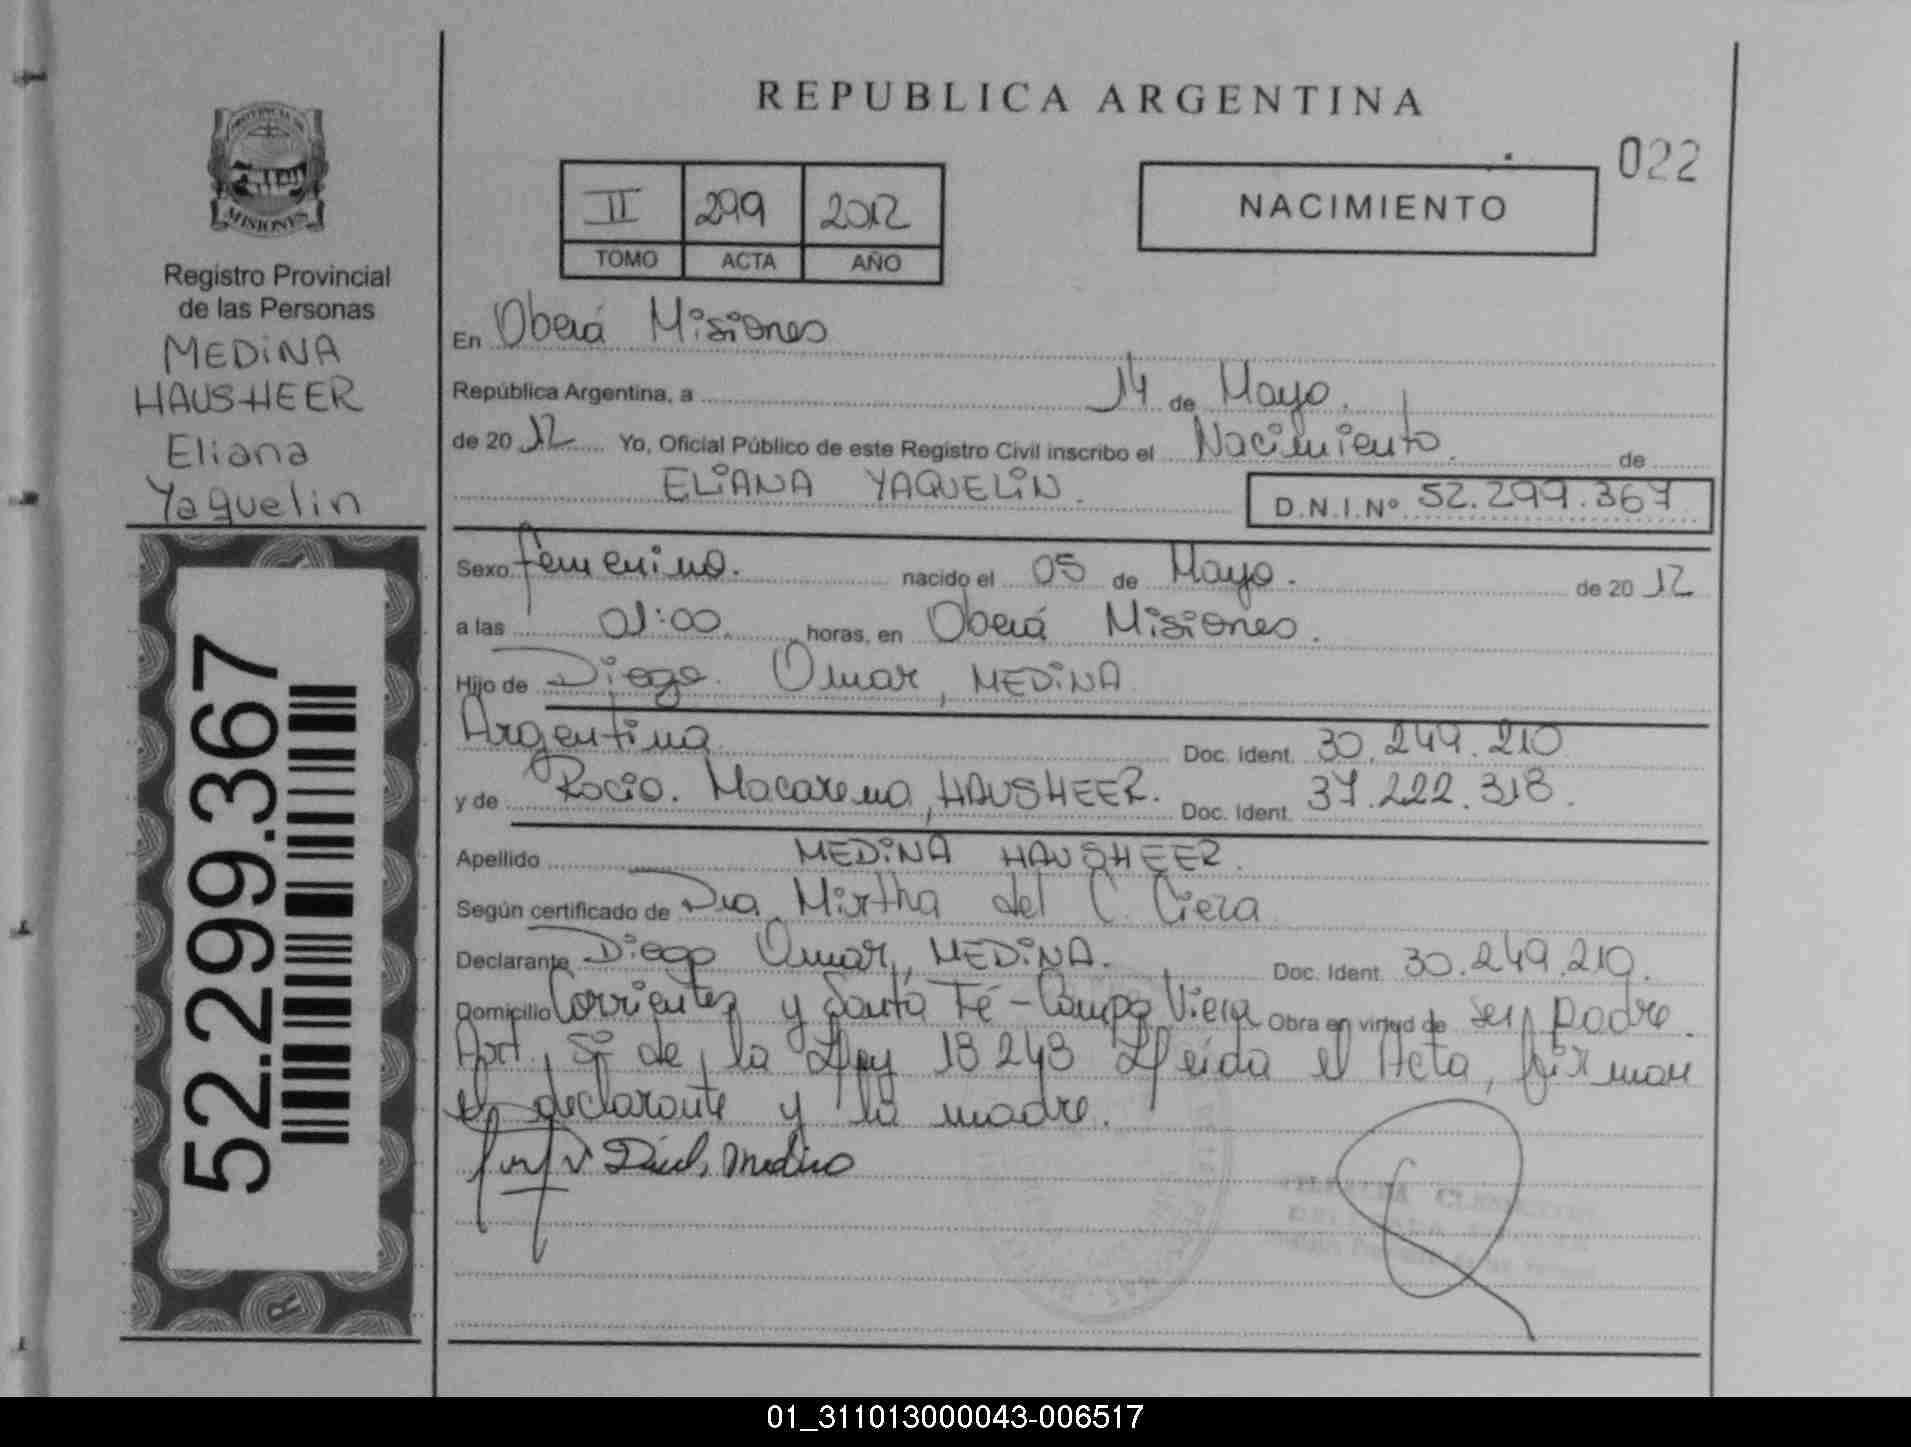 REPUBLICA ARGENTINA
022
II 299 2012
TOMO ACTA AÑO
NACIMIENTO
PROVINCIA DE
MISIONES
Registro Provincial
de las Personas
MEDINA
HAUSHEER
Eliana
Yaquelin
52.299.367
R
En Oberá Misiones
República Argentina, a 14 de Mayo.
de 20 12 Yo, Oficial Público de este Registro Civil inscribo el Nacimiento. de
ELIANA YAQUELIN. D.N.I.Nº 52.299.367
Sexo femenino. nacido el 05 de Mayo. de 20 12
a las 01:00. horas, en Oberá Misiones.
Hijo de Diego. Omar, MEDINA
Argentina Doc. Ident. 30.249.210
y de Rocio. Macarena, HAUSHEER. Doc. Ident. 37.222.318.
Apellido MEDINA HAUSHEER.
Según certificado de Dra Mirtha del C. Ciera
Declarante Diego Omar, MEDINA. Doc. Ident. 30.249.210.
Domicilio Corrientes y Santa Fé - Campo Viera Obra en virtud de ser padre.
Art. 5º de la Ley 18248 Leida el Acta, firman
el declarante y la madre.
Medina
01_311013000043-006517